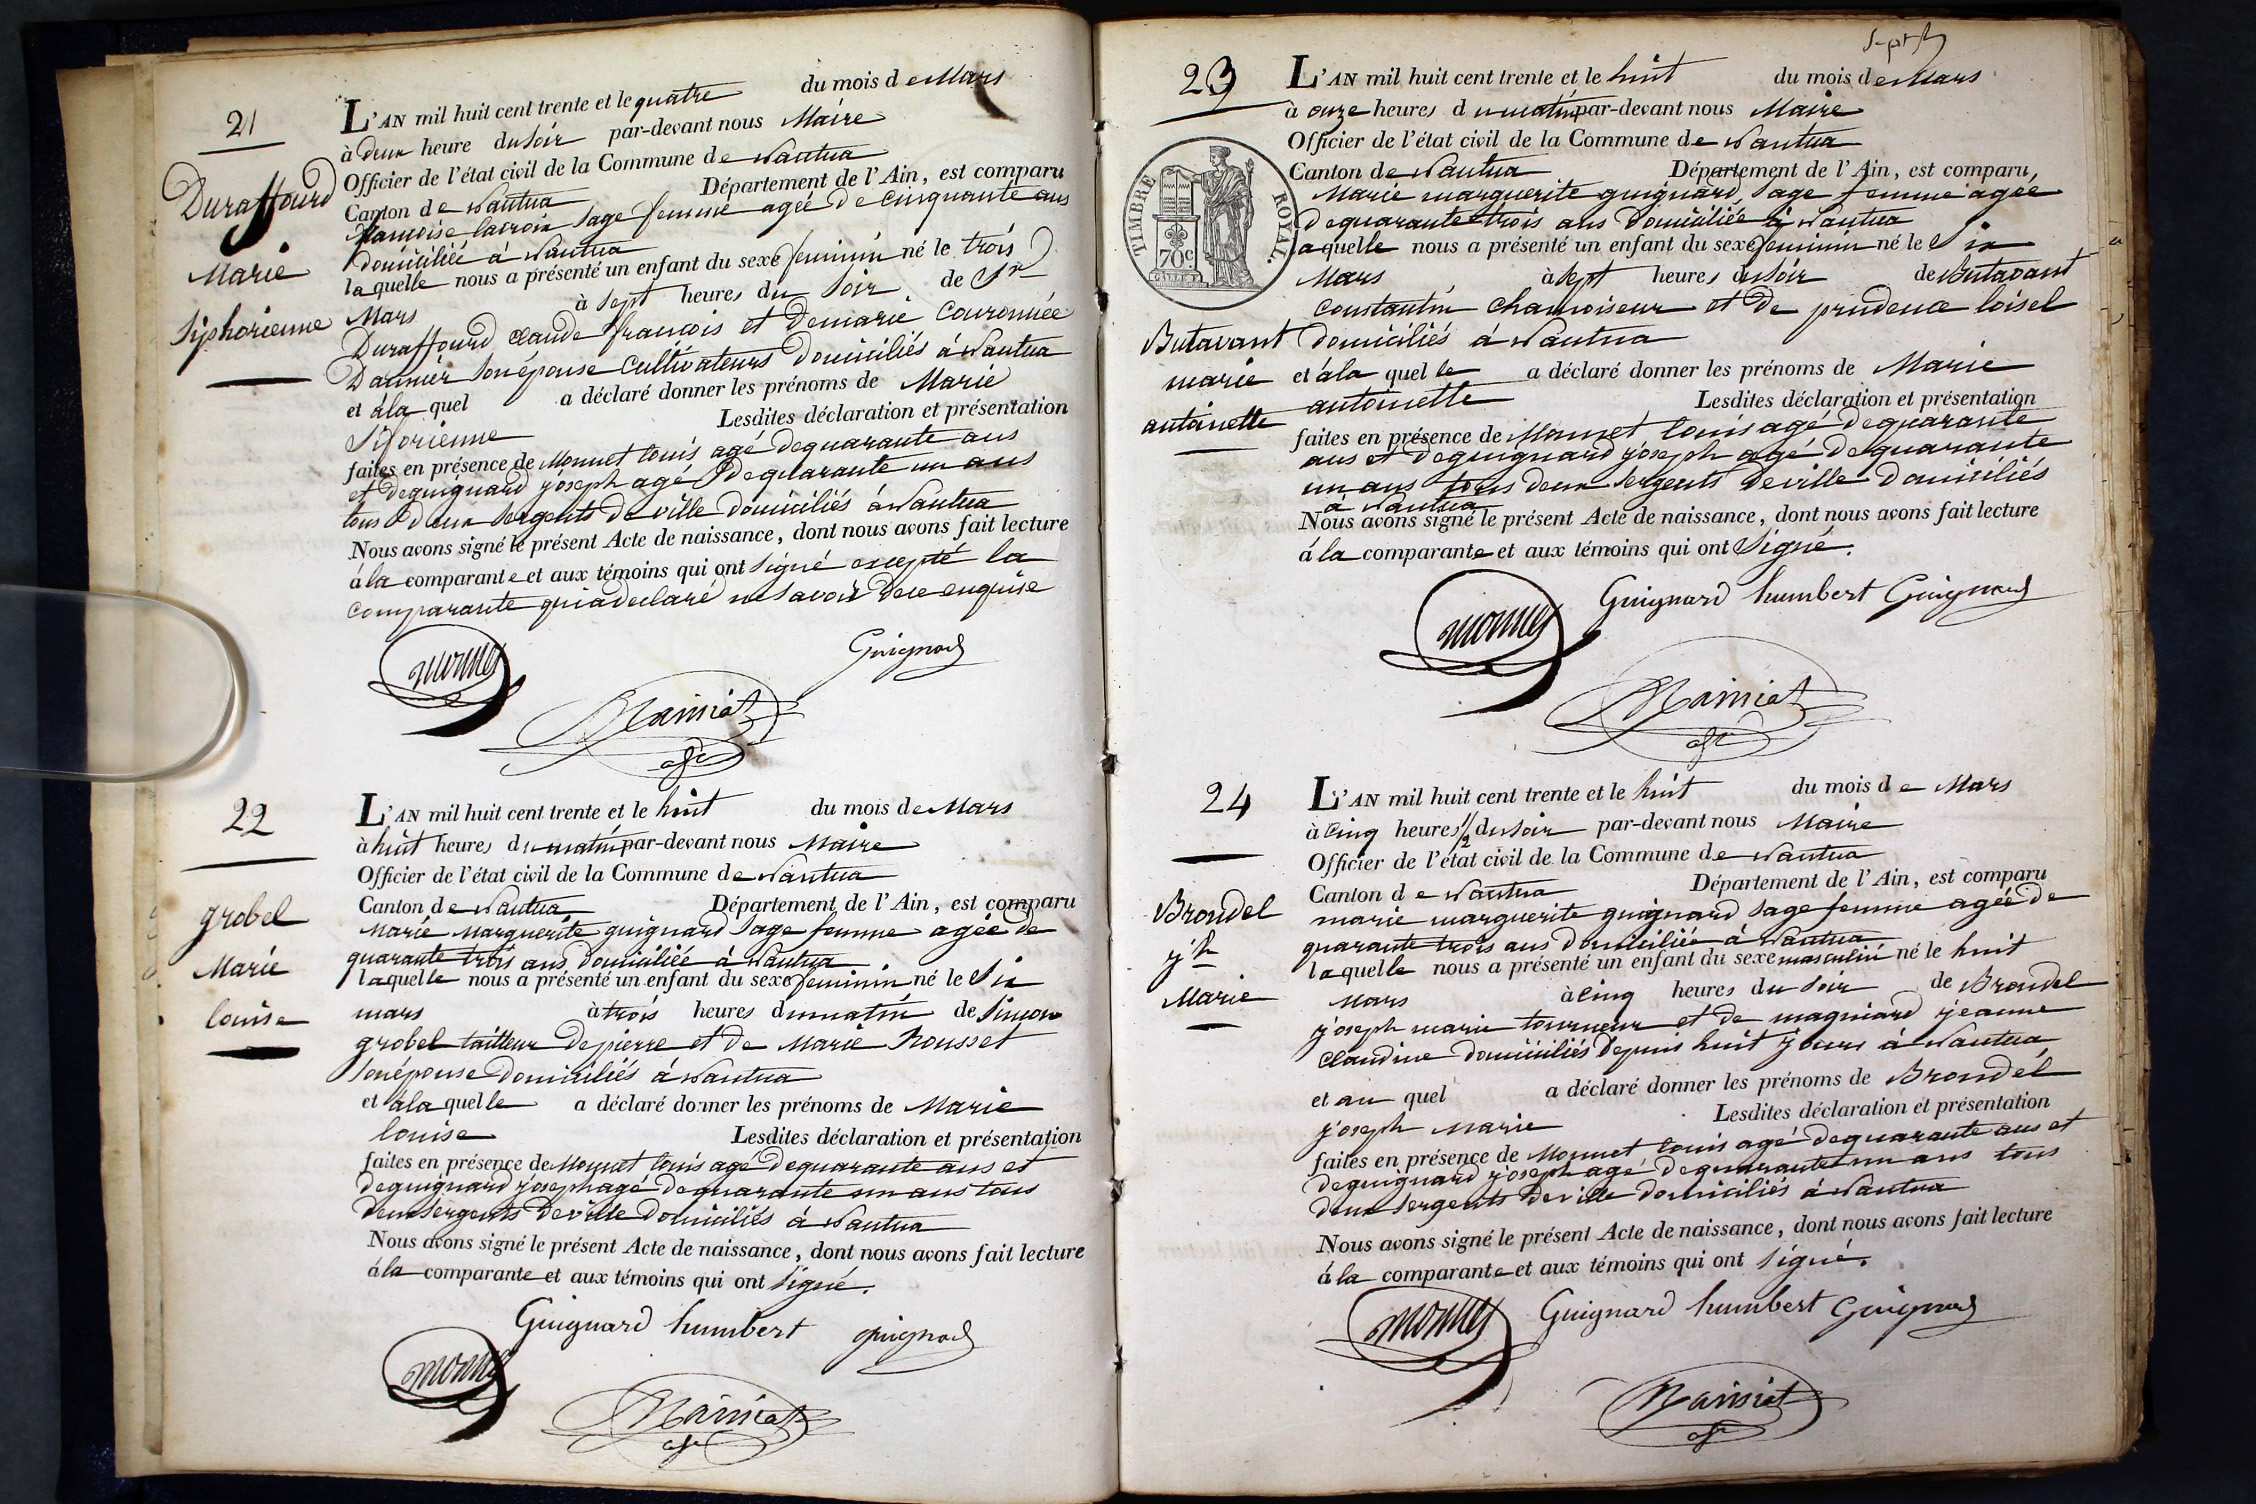 21
Duraffourd
Marie
Siphorienne
L'AN mil huit cent trente et le quatre du mois de Mars
à deux heure du soir par-devant nous Maire
Officier de l'état civil de la Commune de Nantua
Canton de Nantua Département de l'Ain, est comparu
francoise lacroix sage femme agée de cinquante ans
domiciliée à Nantua
laquelle nous a présenté un enfant du sexe feminin né le trois
Mars à sept heures du soir de Sr
Duraffourd claude françois et de marie Couronnée
Darmier son épouse cultivateurs domiciliés à Nantua
et à la quel a déclaré donner les prénoms de Marie
Siforienne Lesdites déclaration et présentation
faites en présence de Monnet louis agé de quarante ans
et de guignard joseph agé de quarante un ans
tous deux sergents de ville domiciliés à Nantua
Nous avons signé le présent Acte de naissance, dont nous avons fait lecture
à la comparante et aux témoins qui ont signé excepté la
comparante qui a declaré ne savoir de ce enquise
monnet
Guignard
22
grobel
Marie
louise
L'AN mil huit cent trente et le huit du mois de Mars
à huit heures du matin par-devant nous Maire
Officier de l'état civil de la Commune de Nantua
Canton de Nantua Département de l'Ain, est comparu
Marie Marguerite guignard sage femme agée de
quarante trois ans domiciliée à Nantua
laquelle nous a présenté un enfant du sexe feminin né le Six
mars à trois heures du matin de Simon
grobel tailleur de pierre et de Marie Rousset
son épouse domiciliés à Nantua
et à la quelle a déclaré donner les prénoms de Marie
louise Lesdites déclaration et présentation
faites en présence de Monnet louis agé de quarante ans et
de guignard joseph agé de quarante un ans tous
deux sergents de ville domiciliés à Nantua
Nous avons signé le présent Acte de naissance, dont nous avons fait lecture
à la comparante et aux témoins qui ont signé.
Guignard humbert guignard
monnet
23
TIMBRE ROYAL.
70c
Butavant
marie
antoinette
L'AN mil huit cent trente et le huit du mois de Mars
à onze heures du matin par-devant nous Maire
Officier de l'état civil de la Commune de Nantua
Canton de Nantua Département de l'Ain, est comparu
Marie marguerite guignard sage femme agée
de quarante trois ans domiciliée à Nantua
laquelle nous a présenté un enfant du sexe feminin né le Six
Mars à sept heures du soir de Butavant
constantin chamoiseur et de prudence loisel
domiciliés à Nantua
et à la quel le a déclaré donner les prénoms de Marie
antoinette Lesdites déclaration et présentation
faites en présence de Monnet louis agé de quarante
ans et de guignard joseph agé de quarante
un ans tous deux sergents de ville domiciliés
à Nantua
Nous avons signé le présent Acte de naissance, dont nous avons fait lecture
à la comparante et aux témoins qui ont signé.
Guignard humbert Guignard
monnet
24
Brondel
jh
Marie
L'AN mil huit cent trente et le huit du mois de Mars
à cinq heures 1/2 du soir par-devant nous Maire
Officier de l'état civil de la Commune de Nantua
Canton de Nantua Département de l'Ain, est comparu
marie marguerite guignard sage femme agée de
quarante trois ans domiciliée à Nantua
laquelle nous a présenté un enfant du sexe masculin né le huit
Mars à cinq heures du soir de Brondel
joseph marie tourneur et de magniard jeanne
claudine domiciliés depuis huit jours à Nantua
et au quel a déclaré donner les prénoms de Brondel
joseph marie Lesdites déclaration et présentation
faites en présence de Monnet louis agé de quarante ans et
de guignard joseph agé de quarante un ans tous
deux sergents de ville domiciliés à Nantua
Nous avons signé le présent Acte de naissance, dont nous avons fait lecture
à la comparante et aux témoins qui ont signé.
monnet Guignard humbert Guignard